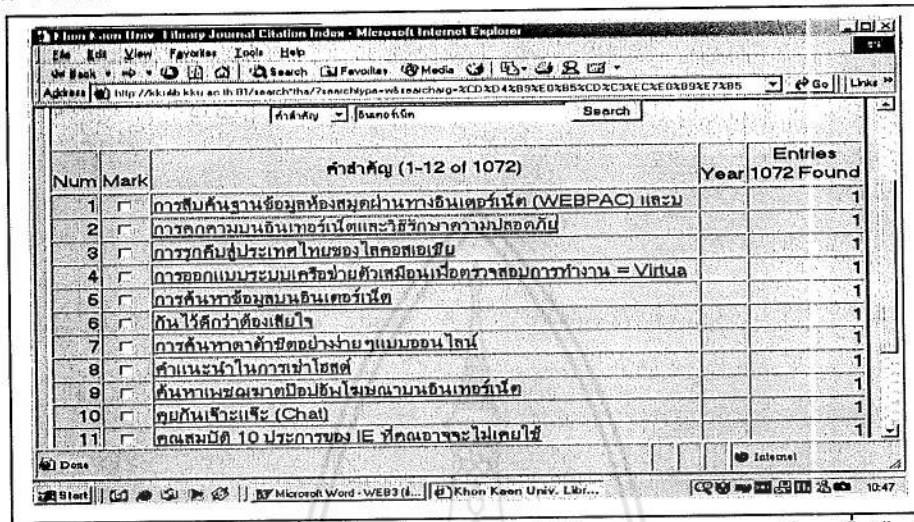 Khon Kaen Univ. Library Journal Citation Index - Microsoft Internet Explorer
File Edit View Favorites Tools Help
Back Search Favorites Media
Address http://kkulib.kku.ac.th:81/search*tha/?searchtype=w&searcharg=%CD%D4%B9%E0%B5%CD%C3%EC%E0%B9%E7%B5 Go Links
คำสำคัญ อินเตอร์เน็ต Search
Num Mark คำสำคัญ (1-12 of 1072) Year Entries 1072 Found
1 การสืบค้นฐานข้อมูลห้องสมุดผ่านทางอินเตอร์เน็ต (WEBPAC) และบ 1
2 การคุกคามบนอินเทอร์เน็ตและวิธีรักษาความปลอดภัย 1
3 การรุกคืบสู่ประเทศไทยของไลคอสเอเชีย 1
4 การออกแบบระบบเครือข่ายตัวเสมือนเพื่อตรวจสอบการทำงาน = Virtua 1
5 การค้นหาข้อมูลบนอินเตอร์เน็ต 1
6 กันไว้ดีกว่าต้องเสียใจ 1
7 การค้นหาดาต้าชีตอย่างง่ายๆแบบออนไลน์ 1
8 คำแนะนำในการเช่าโฮสต์ 1
9 ค้นหาเพชฌฆาตป๊อปอัพโฆษณาบนอินเทอร์เน็ต 1
10 คุยกันเจ๊าะแจ๊ะ (Chat) 1
11 คุณสมบัติ 10 ประการของ IE ที่คุณอาจจะไม่เคยใช้ 1
Done Internet
Start Microsoft Word - WEB3 Khon Kaen Univ. Libr... 10:47